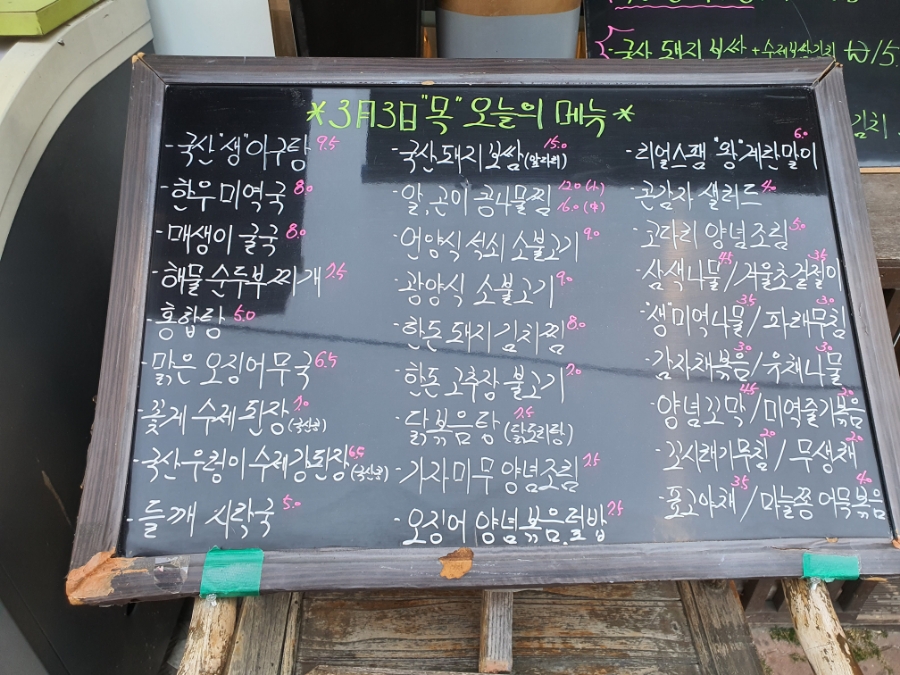 국산 돼지 보쌈 + 수제보쌈김치 ₩15.
김치
*3月3日 "목" 오늘의 메뉴*
-국산"생"아구탕 9.5
-한우 미역국 8.0
-매생이 굴국 8.0
-해물 순두부 찌개 7.5
-홍합탕 5.0
-맑은 오징어 무국 6.5
-꽃게 수제 된장 (국산콩) 7.0
-국산 우렁이 수제강된장 (국산콩) 6.5
-들깨 시락국 5.0
-국산돼지 보쌈 (앞다리) 15.0
-알,곤이 콩나물찜 12.0 (小) 16.0 (大)
-언양식 석쇠 소불고기 9.0
-광양식 소불고기 9.0
-한돈 돼지 김치찜 8.0
-한돈 고추장 불고기 7.0
-닭볶음탕 (닭도리탕) 7.5
-가자미무 양념조림 7.5
-오징어 양념볶음,덮밥 7.5
-리얼스팸 "왕"계란말이 6.0
-콘감자 샐러드 4.0
-코다리 양념조림 5.0
-삼색나물 4.5 / 겨울초겉절이 3.5
-"생"미역나물 3.5 / 파래무침 3.0
-감자채볶음 3.0 / 유채나물 3.0
-양념꼬막 4.5 / 미역줄기볶음 3.0
-꼬시래기무침 2.0 / 무생채 2.0
-표고야채 3.5 / 마늘쫑 어묵볶음 4.0